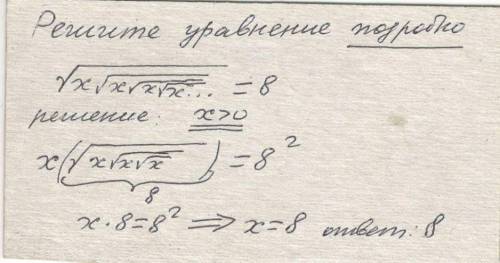 Решите уравнение подробно
√(x√(x√(x√x...))) = 8
решение: x>0
x(√(x√(x√x))) = 8²
8
x·8=8² ⟹ x=8 ответ: 8